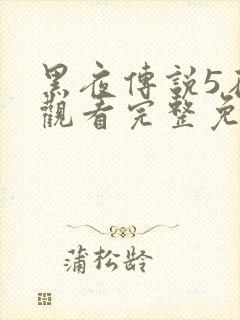 黑夜傳說5在
觀看完整免
蒲松龄